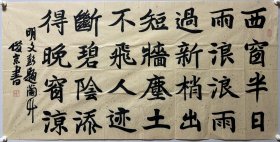 西窗半日
雨浪浪雨
過新梢出
短牆塵土
不飛人迹
斷碧陰添
得晚窗涼
明文彭題竹
書